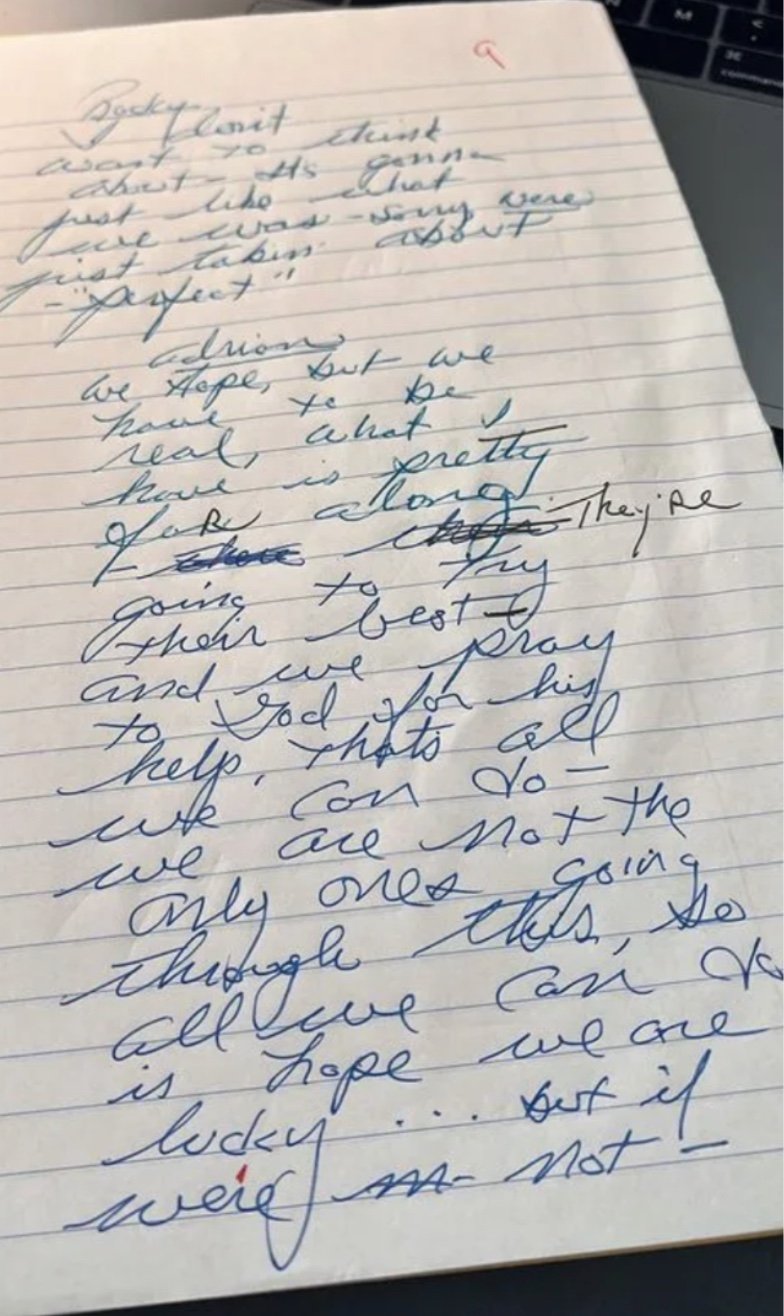 9
Rocky
I don't
want to think
about - its gonna
just like what
we was - sorry were
just takin about
- "perfect"
adrian
we Hope, but we
have to be
real, what I
have is pretty
far along
- They're
going to try
their best -
and we pray
to God for his
help, thats all
we can do -
we are not the
only ones going
through this, so
all we can do
is hope we are
lucky .... but if
we're not -